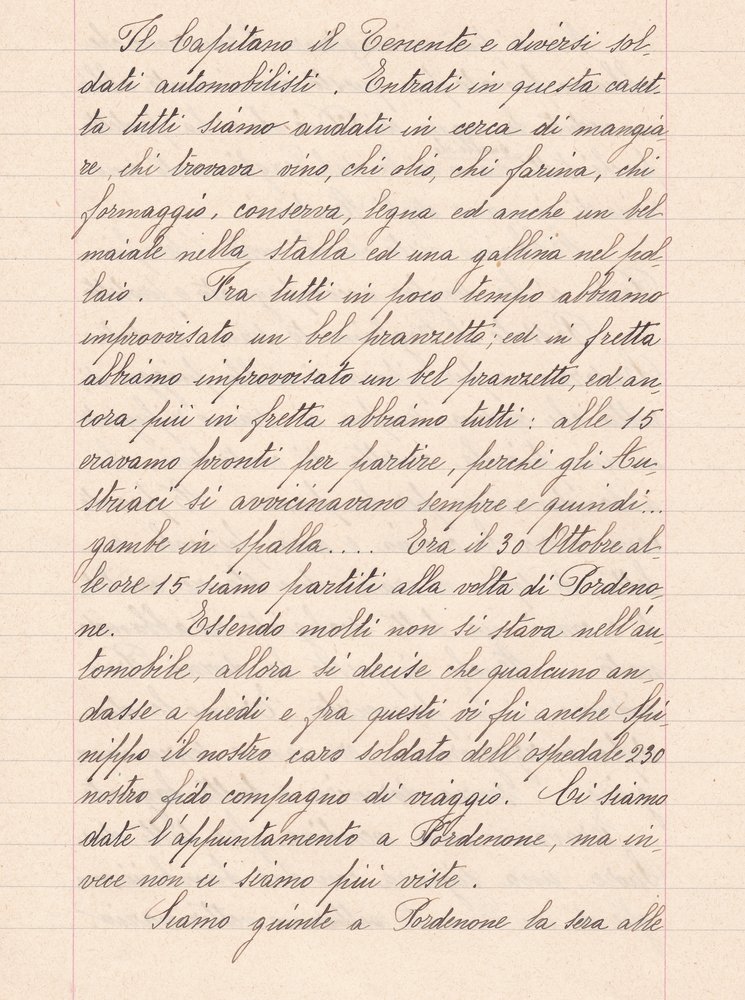 Il Capitano il Tenente e diversi sol-
dati automobilisti. Entrati in questa caset-
ta tutti siamo andati in cerca di mangia-
re, chi trovava vino, chi olio, chi farina, chi
formaggio, conserva, legna ed anche un bel
maiale nella stalla ed una gallina nel pol-
laio. Fra tutti in poco tempo abbiamo
improvvisato un bel pranzetto; ed in fretta
abbiamo improvvisato un bel pranzetto, ed an-
cora più in fretta abbiamo tutti: alle 15
eravamo pronti per partire, perchè gli Au-
striaci si avvicinavano sempre e quindi...
gambe in spalla.... Era il 30 Ottobre al-
le ore 15 siamo partiti alla volta di Pordeno-
ne. Essendo molti non si stava nell'au-
tomobile, allora si decise che qualcuno an-
dasse a piedi e fra questi vi fu anche Spi-
nippo il nostro caro soldato dell'ospedale 230
nostro fido compagno di viaggio. Ci siamo
date l'appuntamento a Pordenone, ma in-
vece non ci siamo più viste.
Siamo giunte a Pordenone la sera alle